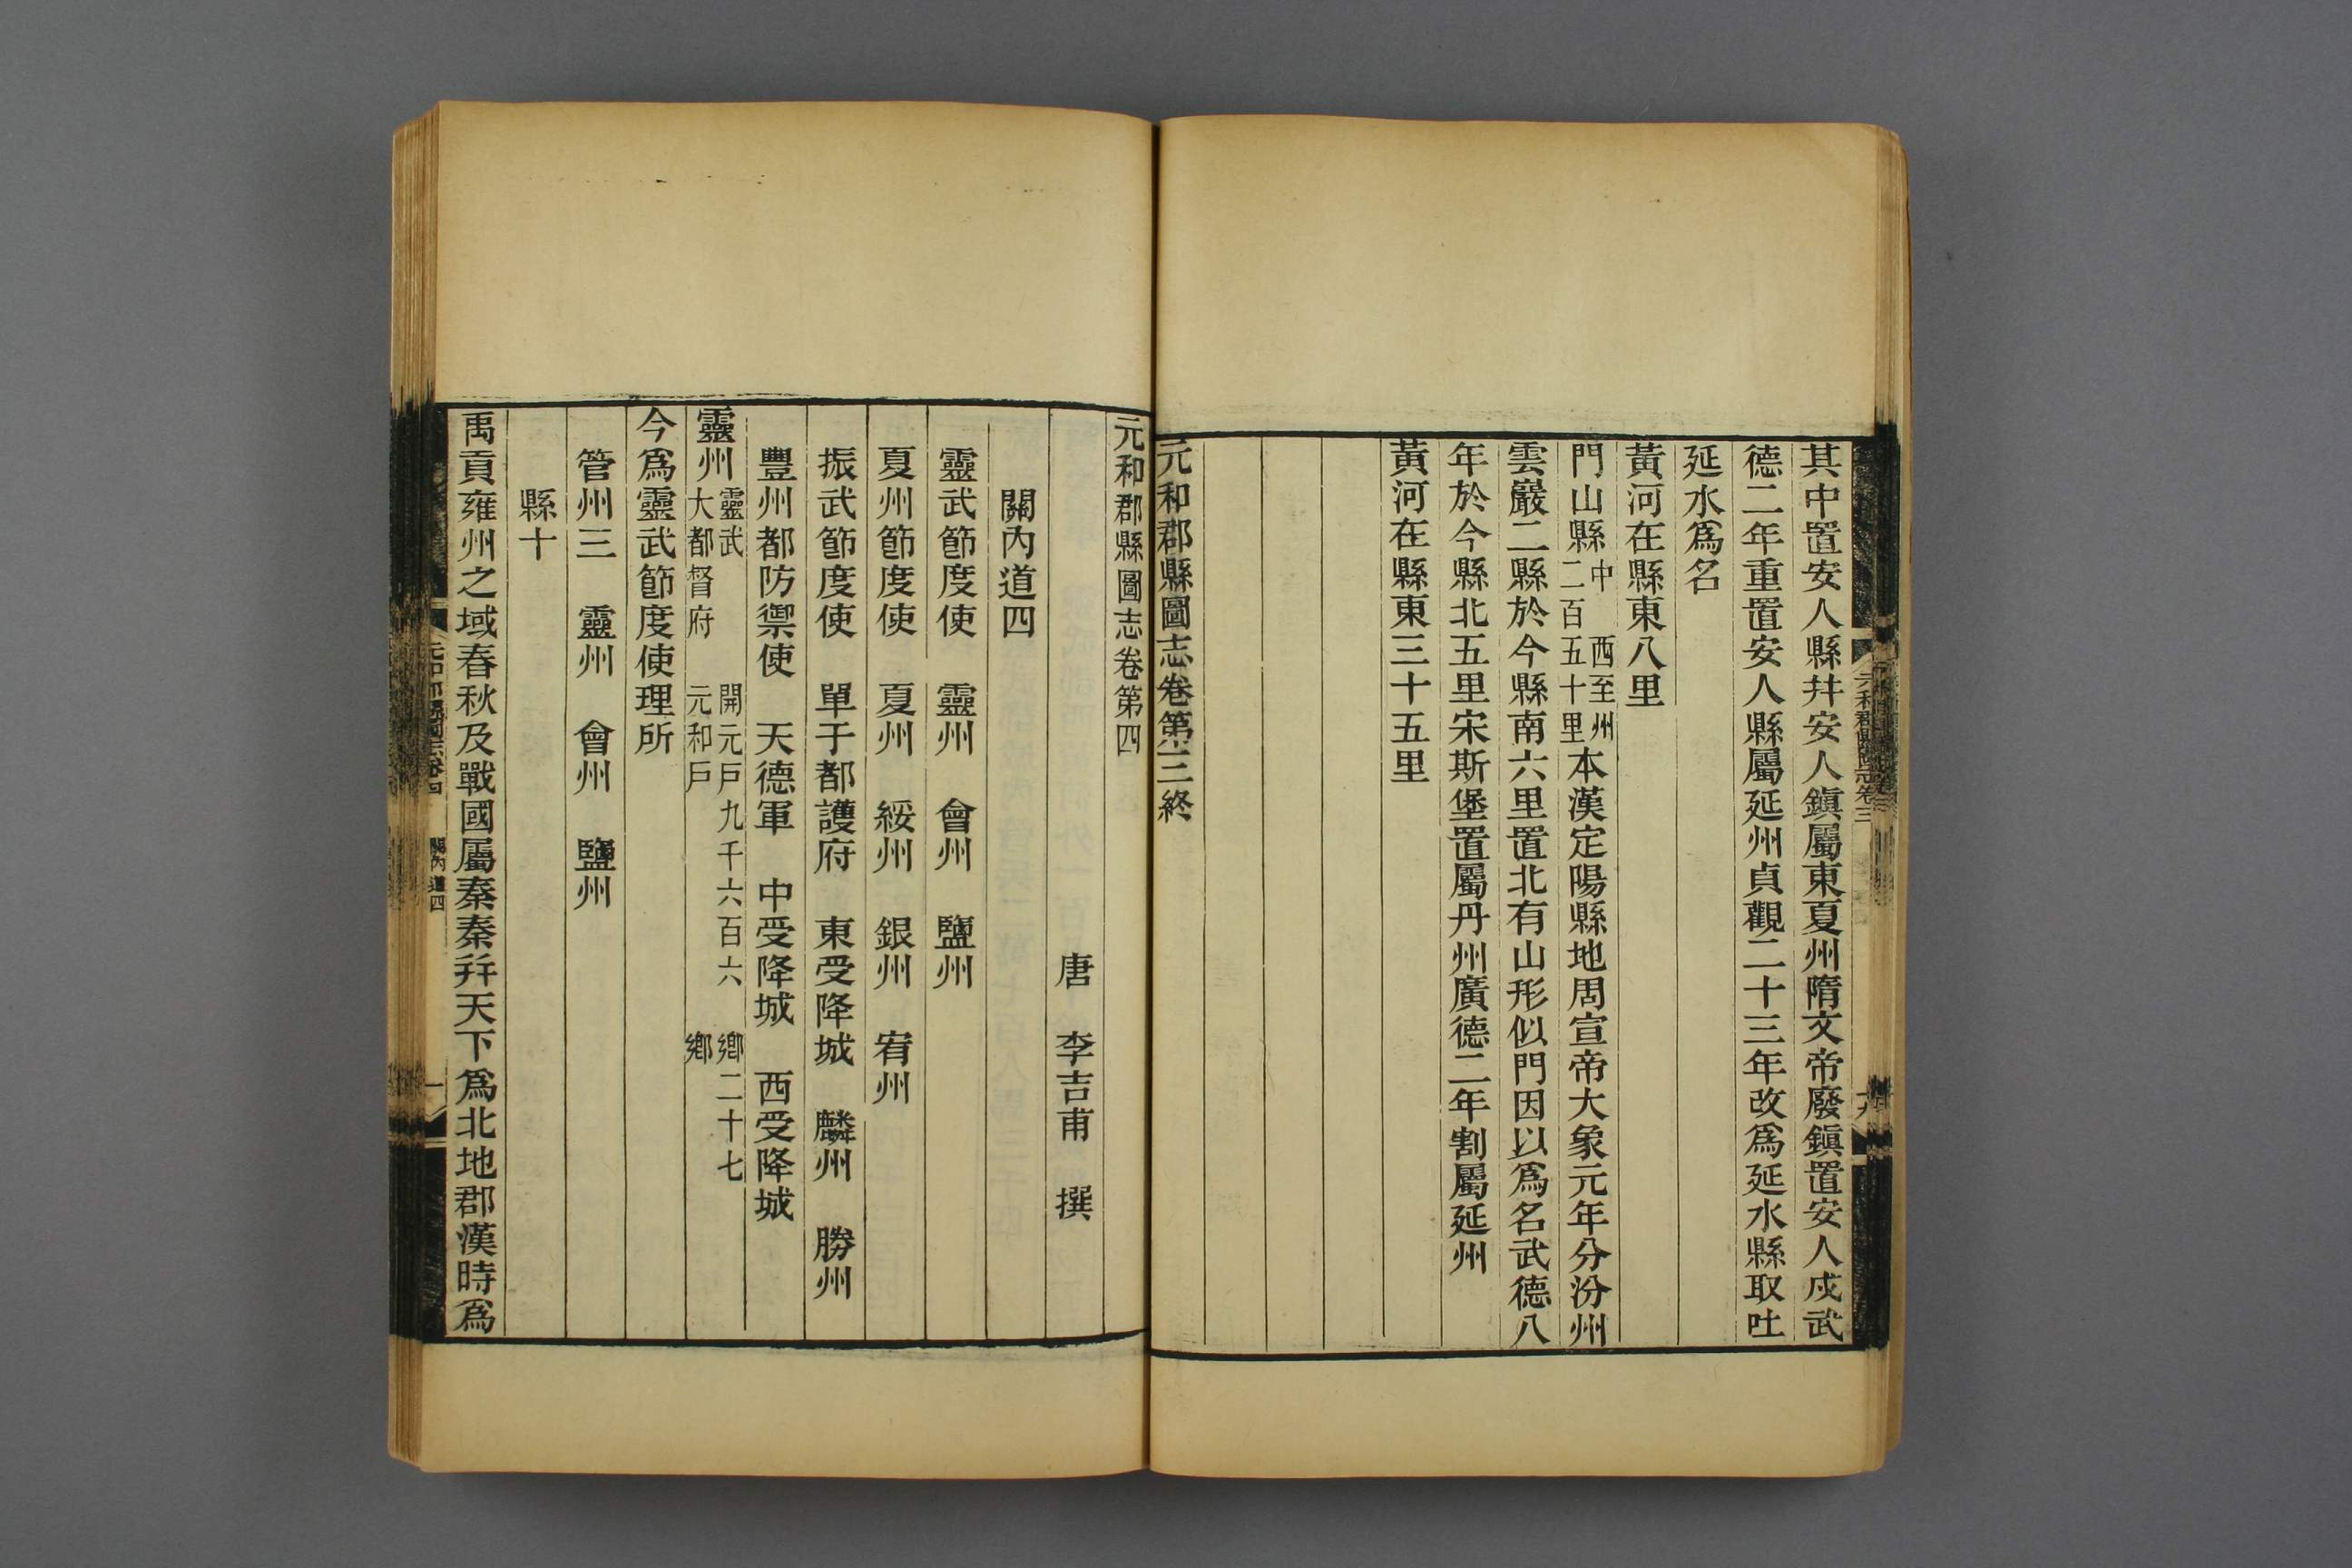 其中置安人縣幷安人鎭屬東夏州隋文帝廢鎭置安人戍武
德二年重置安人縣屬延州貞觀二十三年改爲延水縣取吐
延水爲名
黃河在縣東八里
門山縣中 西至州二百五十里本漢定陽縣地周宣帝大象元年分汾州
雲巖二縣於今縣南六里置北有山形似門因以爲名武德八
年於今縣北五里宋斯堡置屬丹州廣德二年割屬延州
黃河在縣東三十五里
元和郡縣圖志卷第三終
元和郡縣圖志卷第四
唐 李吉甫 撰
關內道四
靈武節度使 靈州 會州 鹽州
夏州節度使 夏州 綏州 銀州 宥州
振武節度使 單于都護府 東受降城 麟州 勝州
豐州都防禦使 天德軍 中受降城 西受降城
靈州靈武大都督府 開元戶九千六百六 鄉二十七 元和戶 鄉
今爲靈武節度使理所
管州三 靈州 會州 鹽州
縣十
禹貢雍州之域春秋及戰國屬秦秦幷天下爲北地郡漢時爲
元和郡縣圖志卷四 關內道四 一